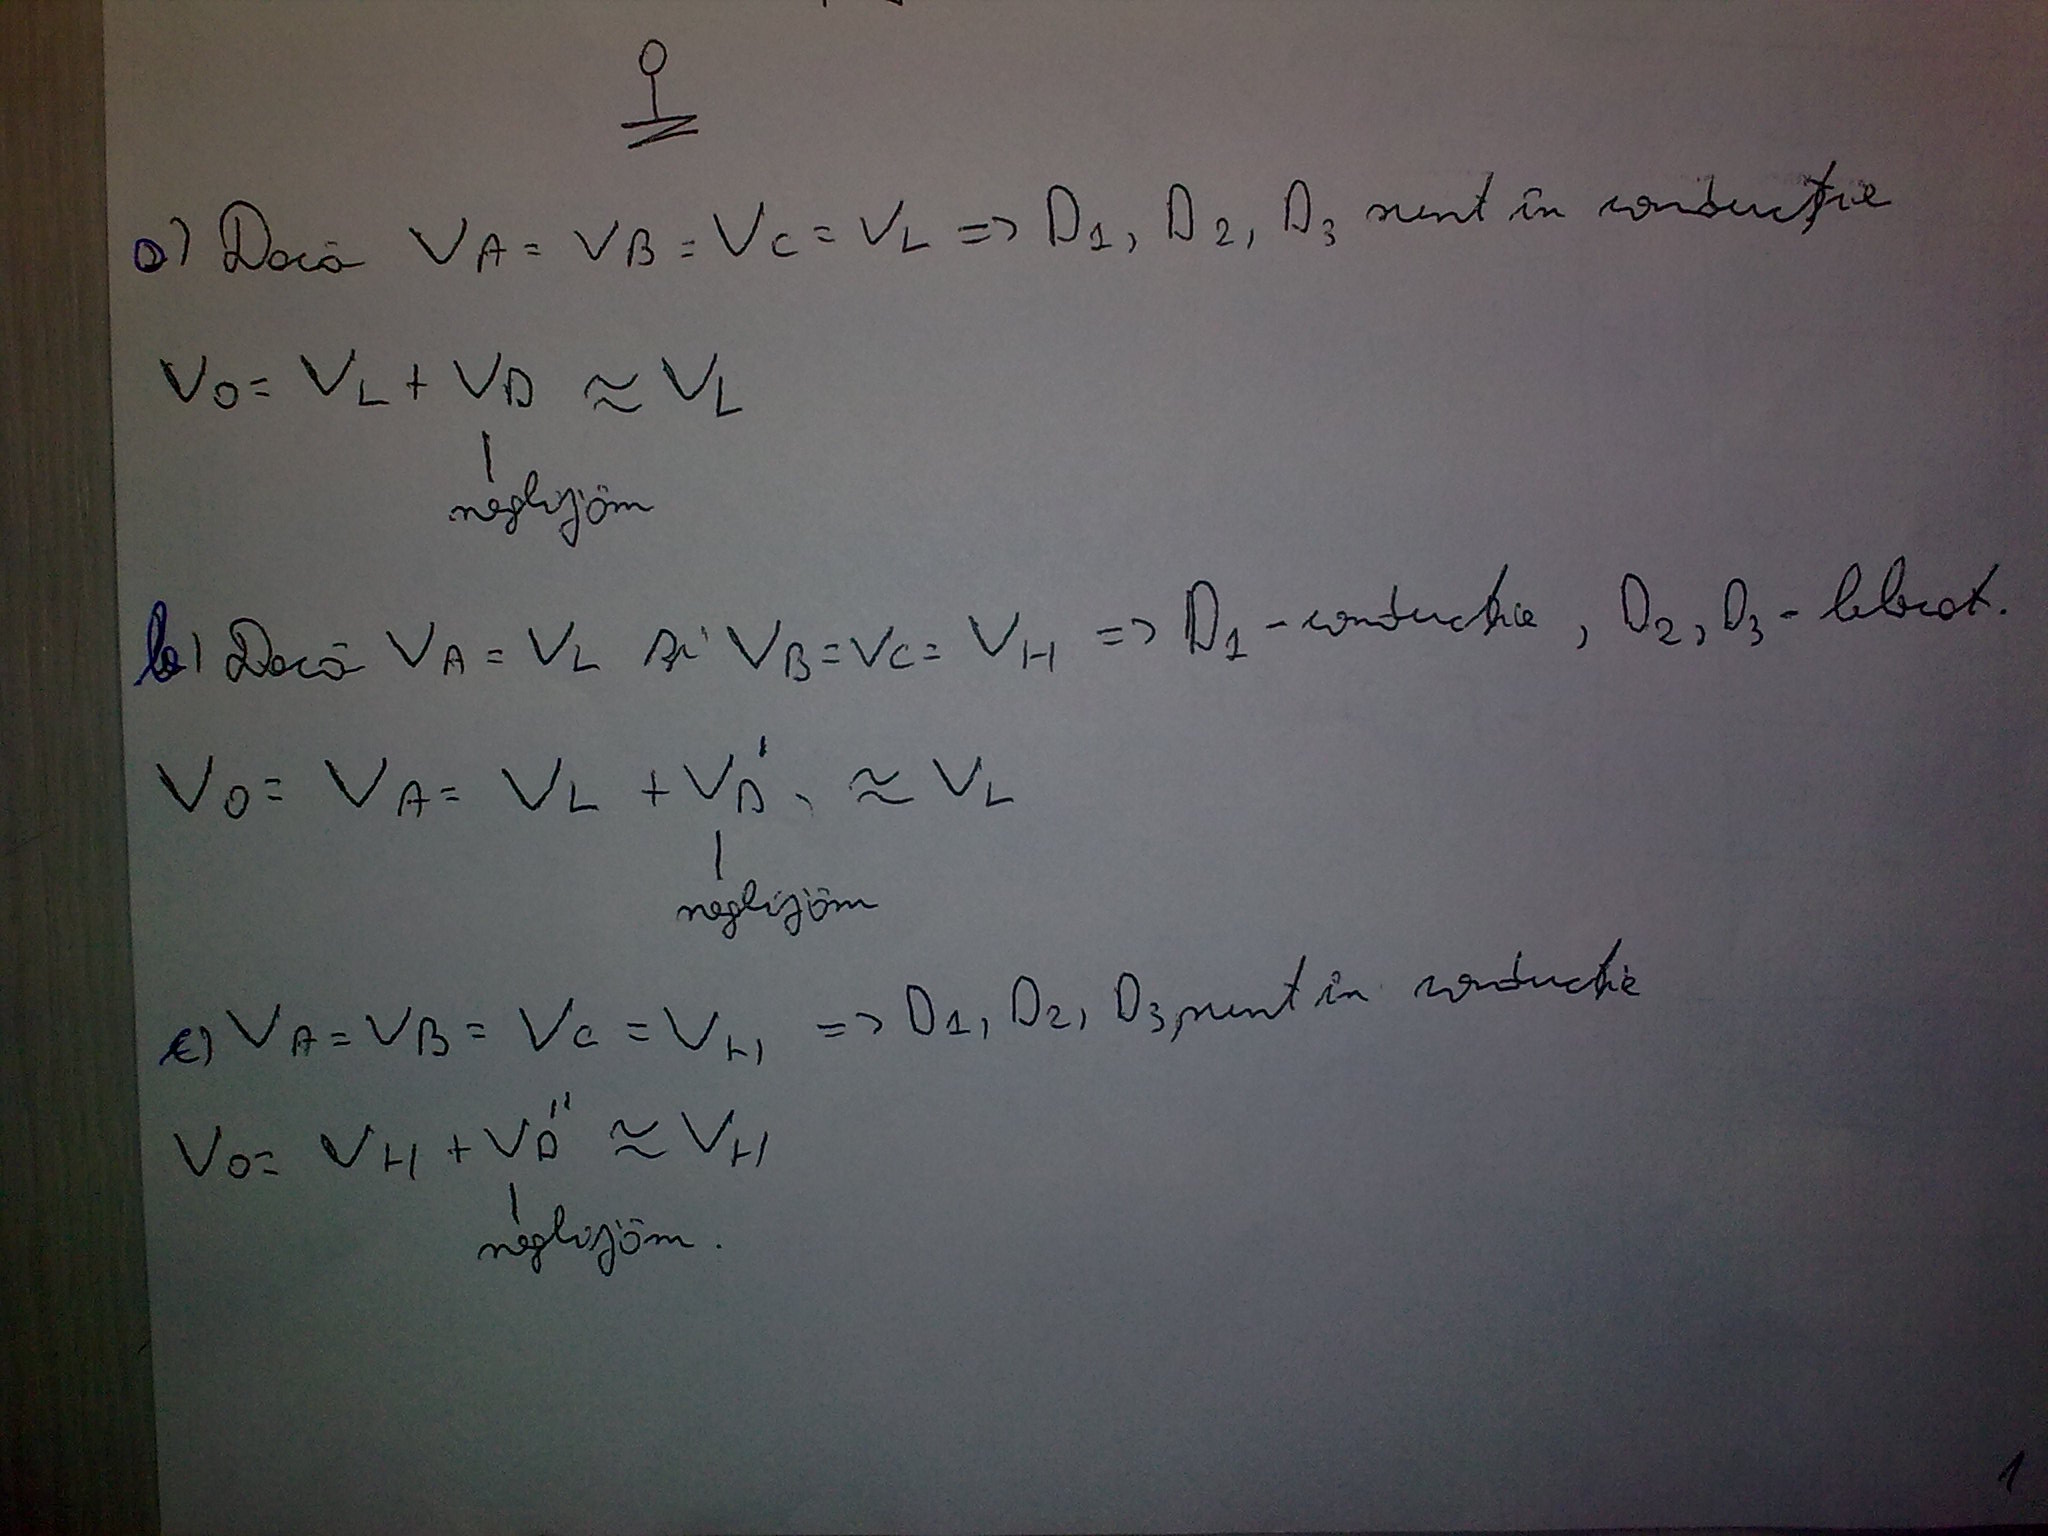 a) Dacă VA = VB = VC = VL => D1, D2, D3 sunt în conducție
VO = VL + VD ≈ VL
neglijăm
b) Dacă VA = VL și VB = VC = VH => D1 - conductie, D2, D3 - blocat.
VO = VA = VL + VD' ≈ VL
neglijăm
c) VA = VB = VC = VH => D1, D2, D3 sunt în conductie
VO = VH + VD'' ≈ VH
neglijăm.
1